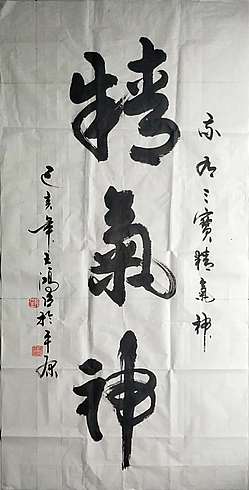 家有三寶精氣神
精氣神
己亥年王鴻於平原